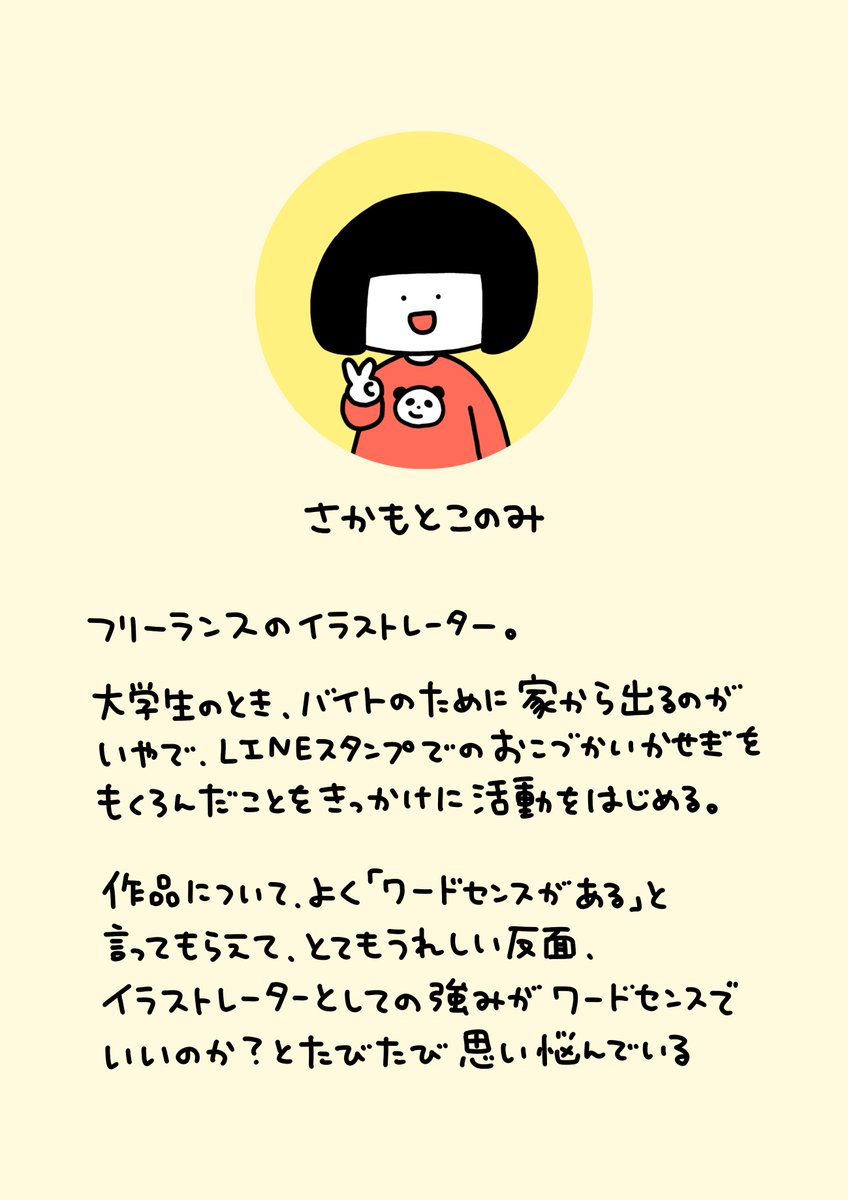 さかもとこのみ
フリーランスのイラストレーター。
大学生のとき、バイトのために家から出るのが
いやで、LINEスタンプでのおこづかいかせぎを
もくろんだことをきっかけに活動をはじめる。
作品について、よく「ワードセンスがある」と
言ってもらえて、とてもうれしい反面、
イラストレーターとしての強みがワードセンスで
いいのか？とたびたび思い悩んでいる